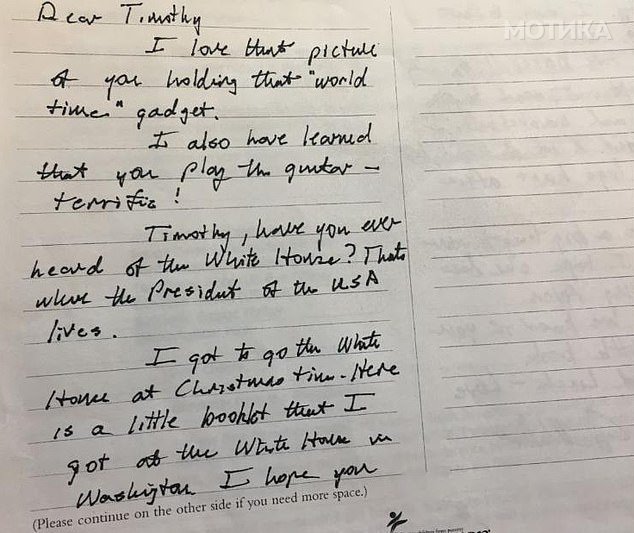 МОТИКА
Dear Timothy
I love that picture
of you holding that "world
time" gadget.
I also have learned
that you play the guitar –
terrific!
Timothy, have you ever
heard of the White House? Thats
where the President of the USA
lives.
I got to go the White
House at Christmas time. Here
is a little booklet that I
got at the White House in
Washington I hope you
(Please continue on the other side if you need more space.)